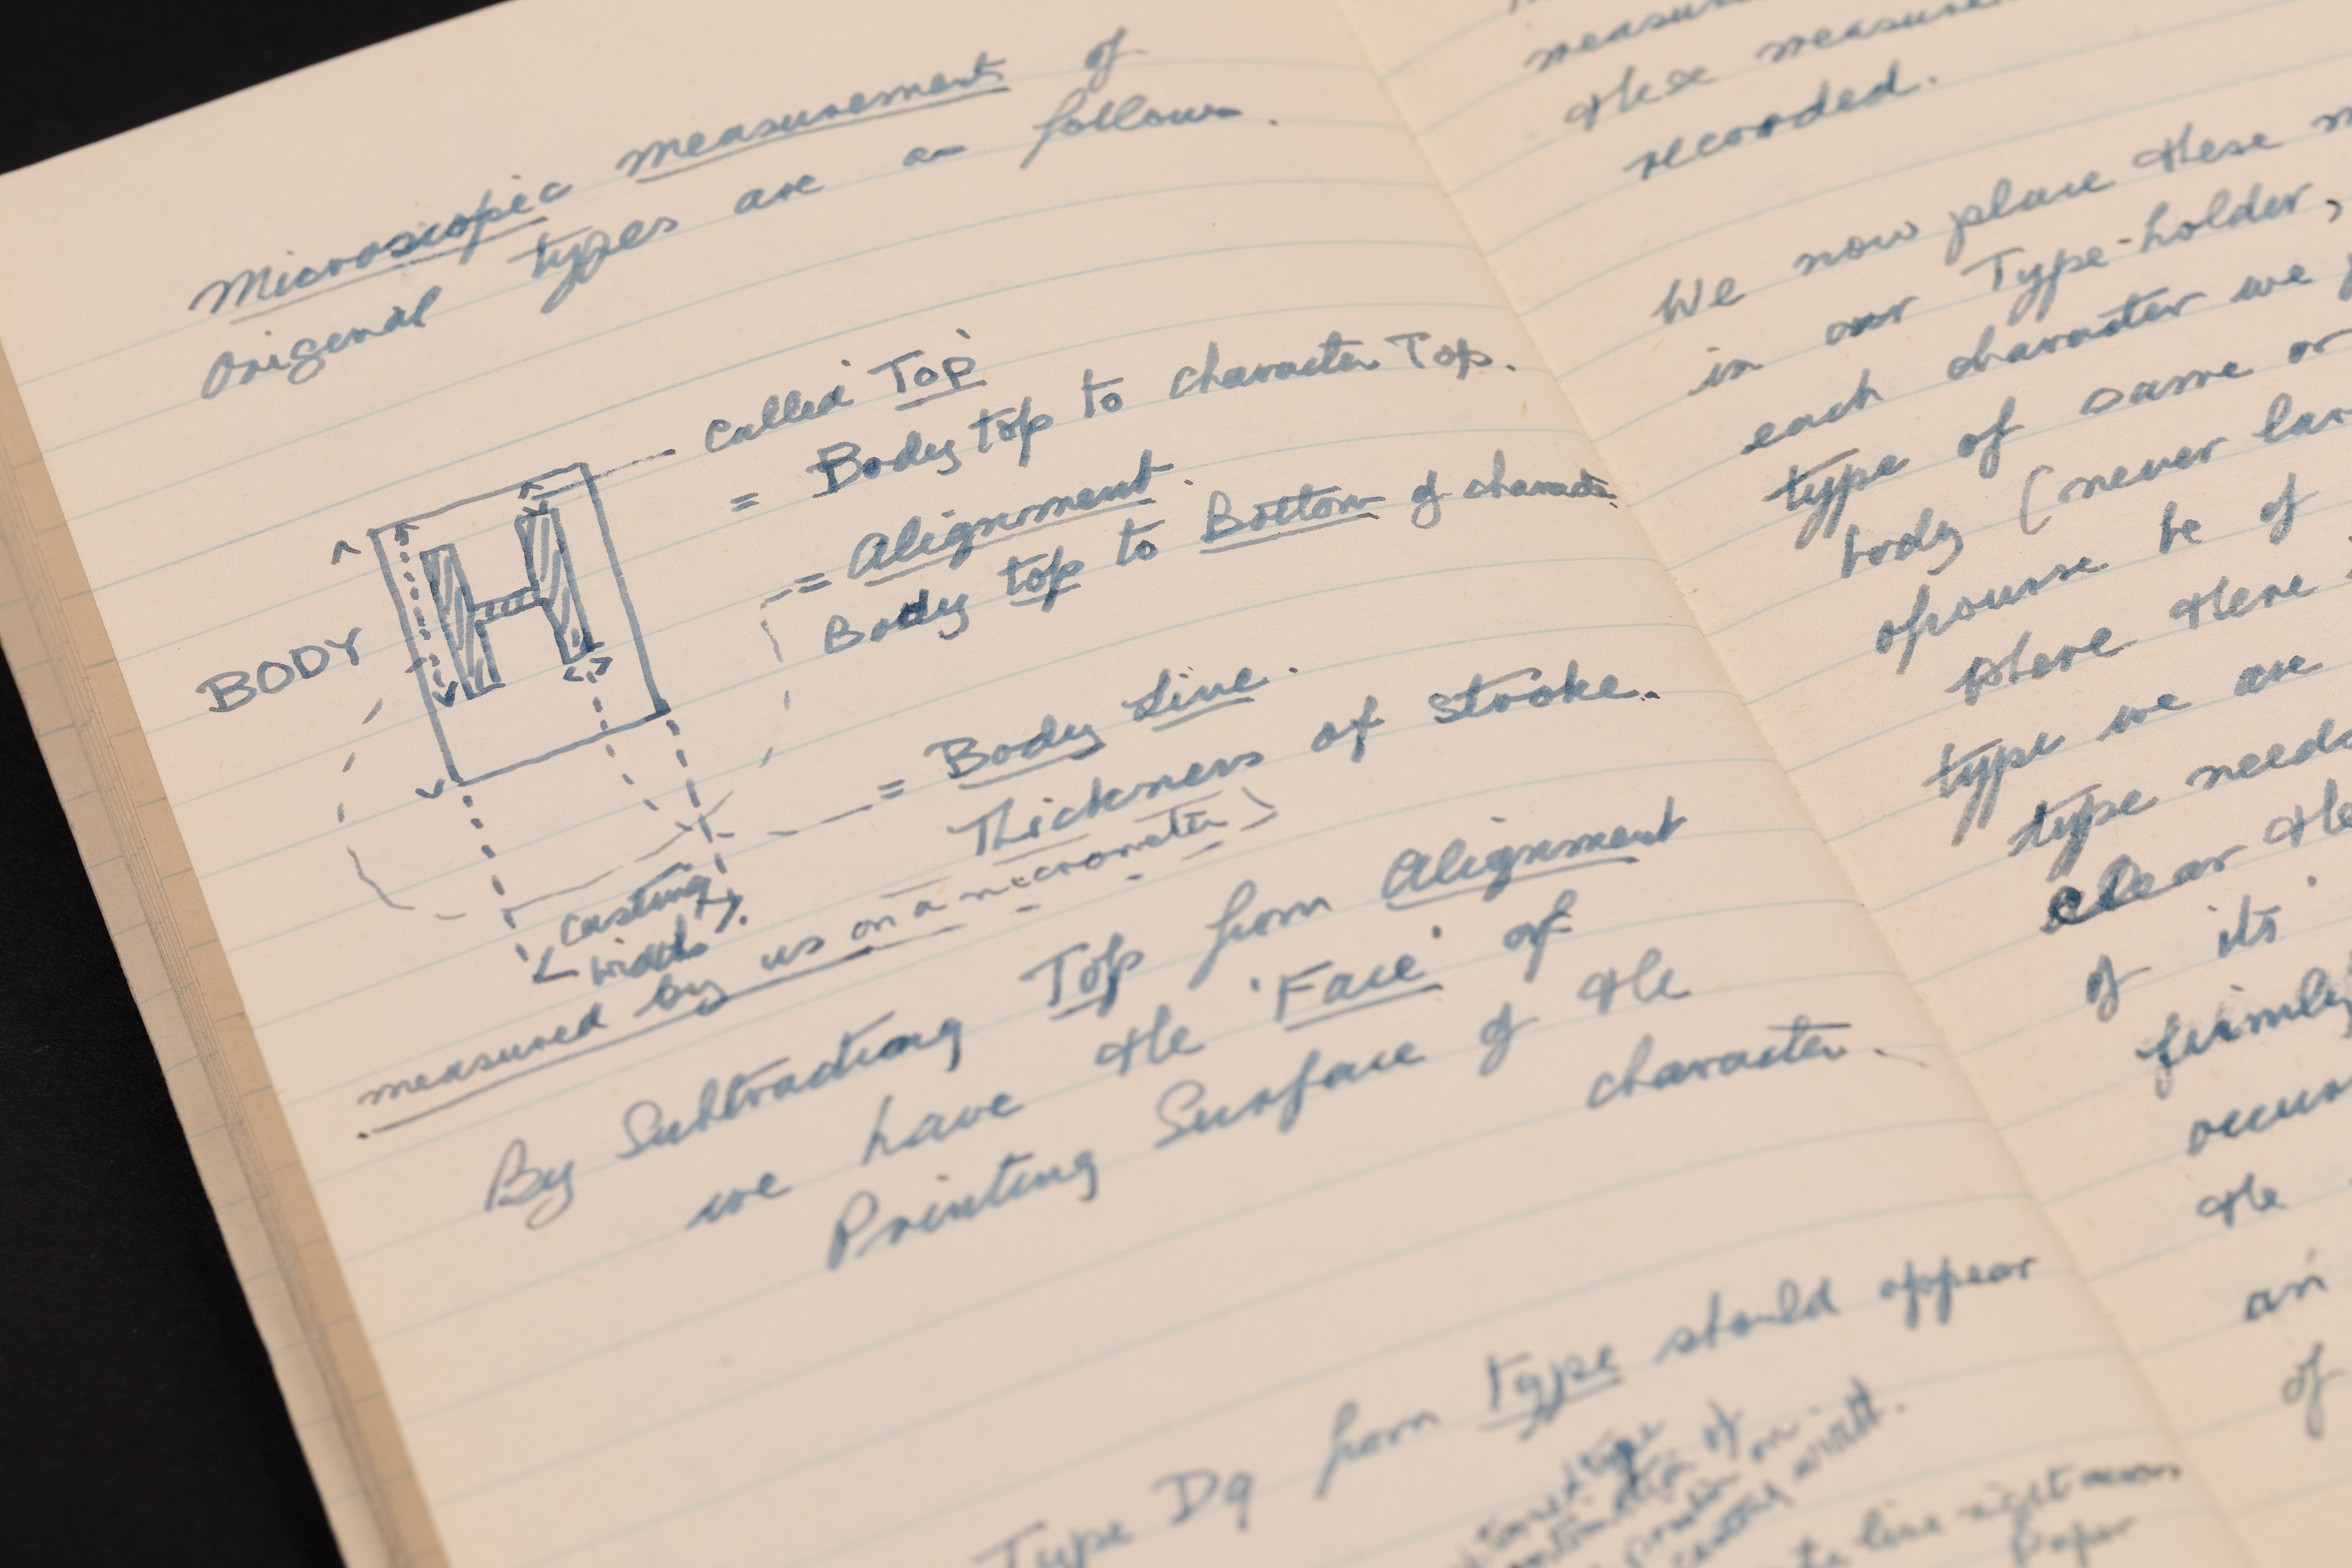 Microscopic measurement of
Original types are as follows.
called 'Top'
= Body top to character Top.
= Alignment.
Body top to Bottom of character.
BODY
H
= Body Line.
Thickness of Stroke.
Casting
width
measured by us on a micrometer)
By Subtracting Top from Alignment
we have the 'Face' of
Printing Surface of the
character.
Type Dg from type should appear
type
of
on
width.
line
Paper
these
recorded.
We now place these
in our Type-holder,
each character we
type of same or
body (never
ofcourse be of
where there
type we are
type needs
clear the
of its
firmly
the
an
of